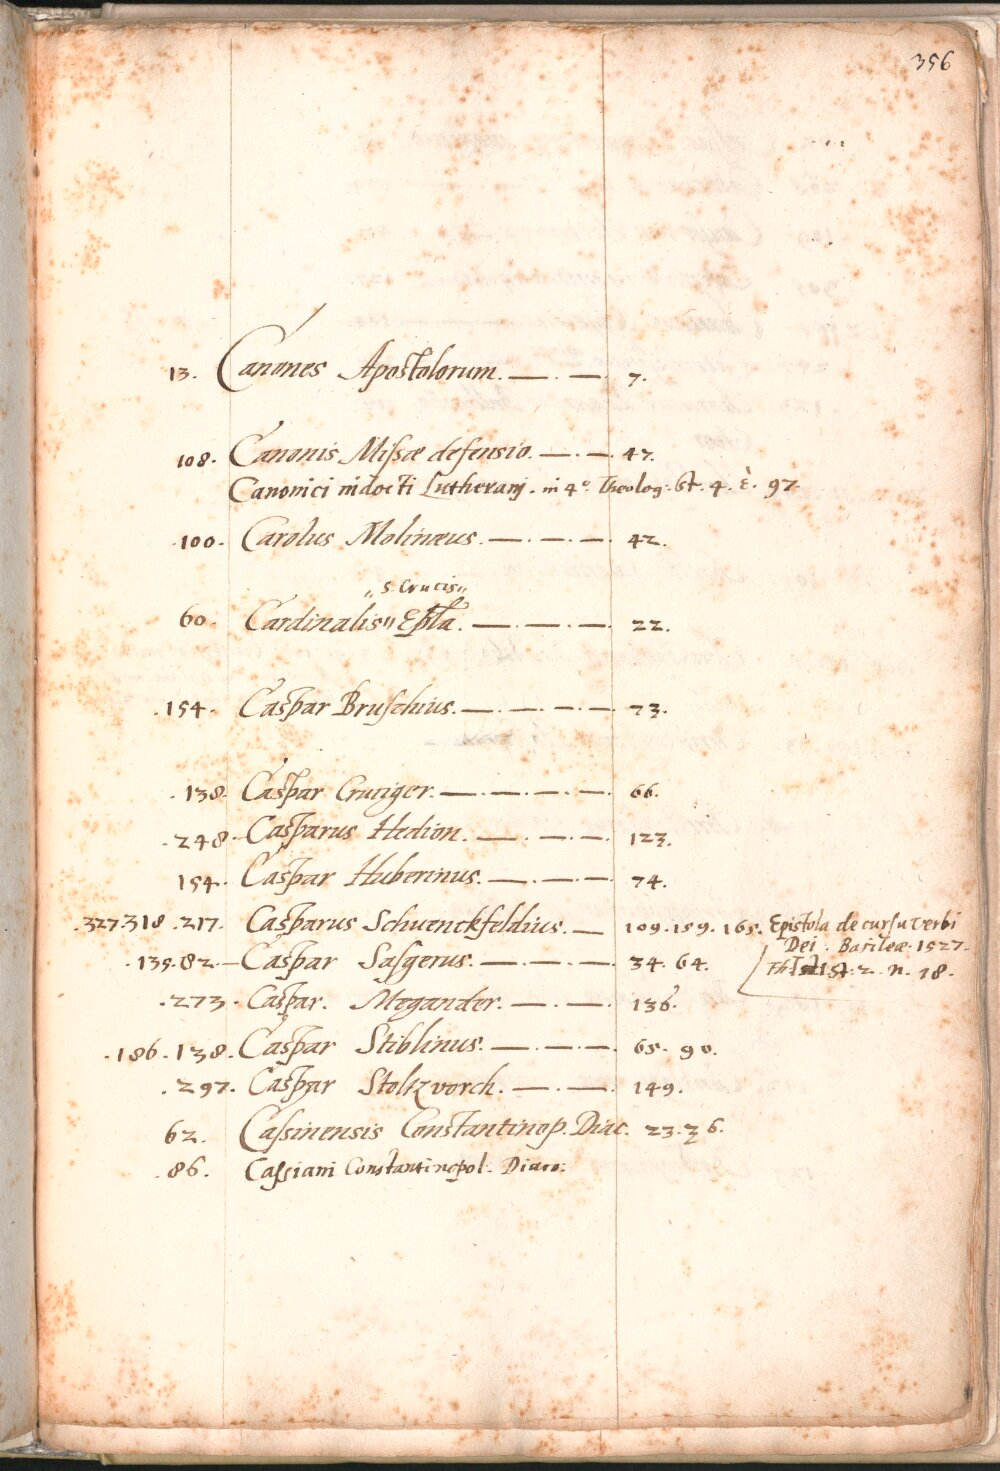 356
13. Canones Apostolorum. — . — . 7.
108. Canonis Missæ defensio. — . — 47.
Canonici indocti Lutherani. in 4º Theolog. St. 4. E. 97.
.100. Carolus Molinæus. — . — . — . 42.
„S. Crucis„
60. Cardinalis„ Epla. — . — . — . 22.
.154. Caspar Bruschius. — . — . — . 73.
.138. Caspar Cruciger. — . — . — . — . 66.
.248. Casparus Hedion. — . — . — . 123.
154. Caspar Huberinus. — . — . — . 74.
.327.318.217. Casparus Schuenckfeldius. — 109.159.165. Epistola de cursu verbi
Dei. Basileæ. 1527.
.135.82.— Caspar Sasgerus. — . — . — . 34. 64. Th St. 2. n. 18.
.273. Caspar. Megander. — . — . 136.
.186.138. Caspar Stiblinus. — . — . — . 65. 90.
.297. Caspar Stoltzvorch. — . — . 149.
62. Cassinensis Constantinop. Diac. 23.36.
.86. Cassiani Constantinopol. Diaco: